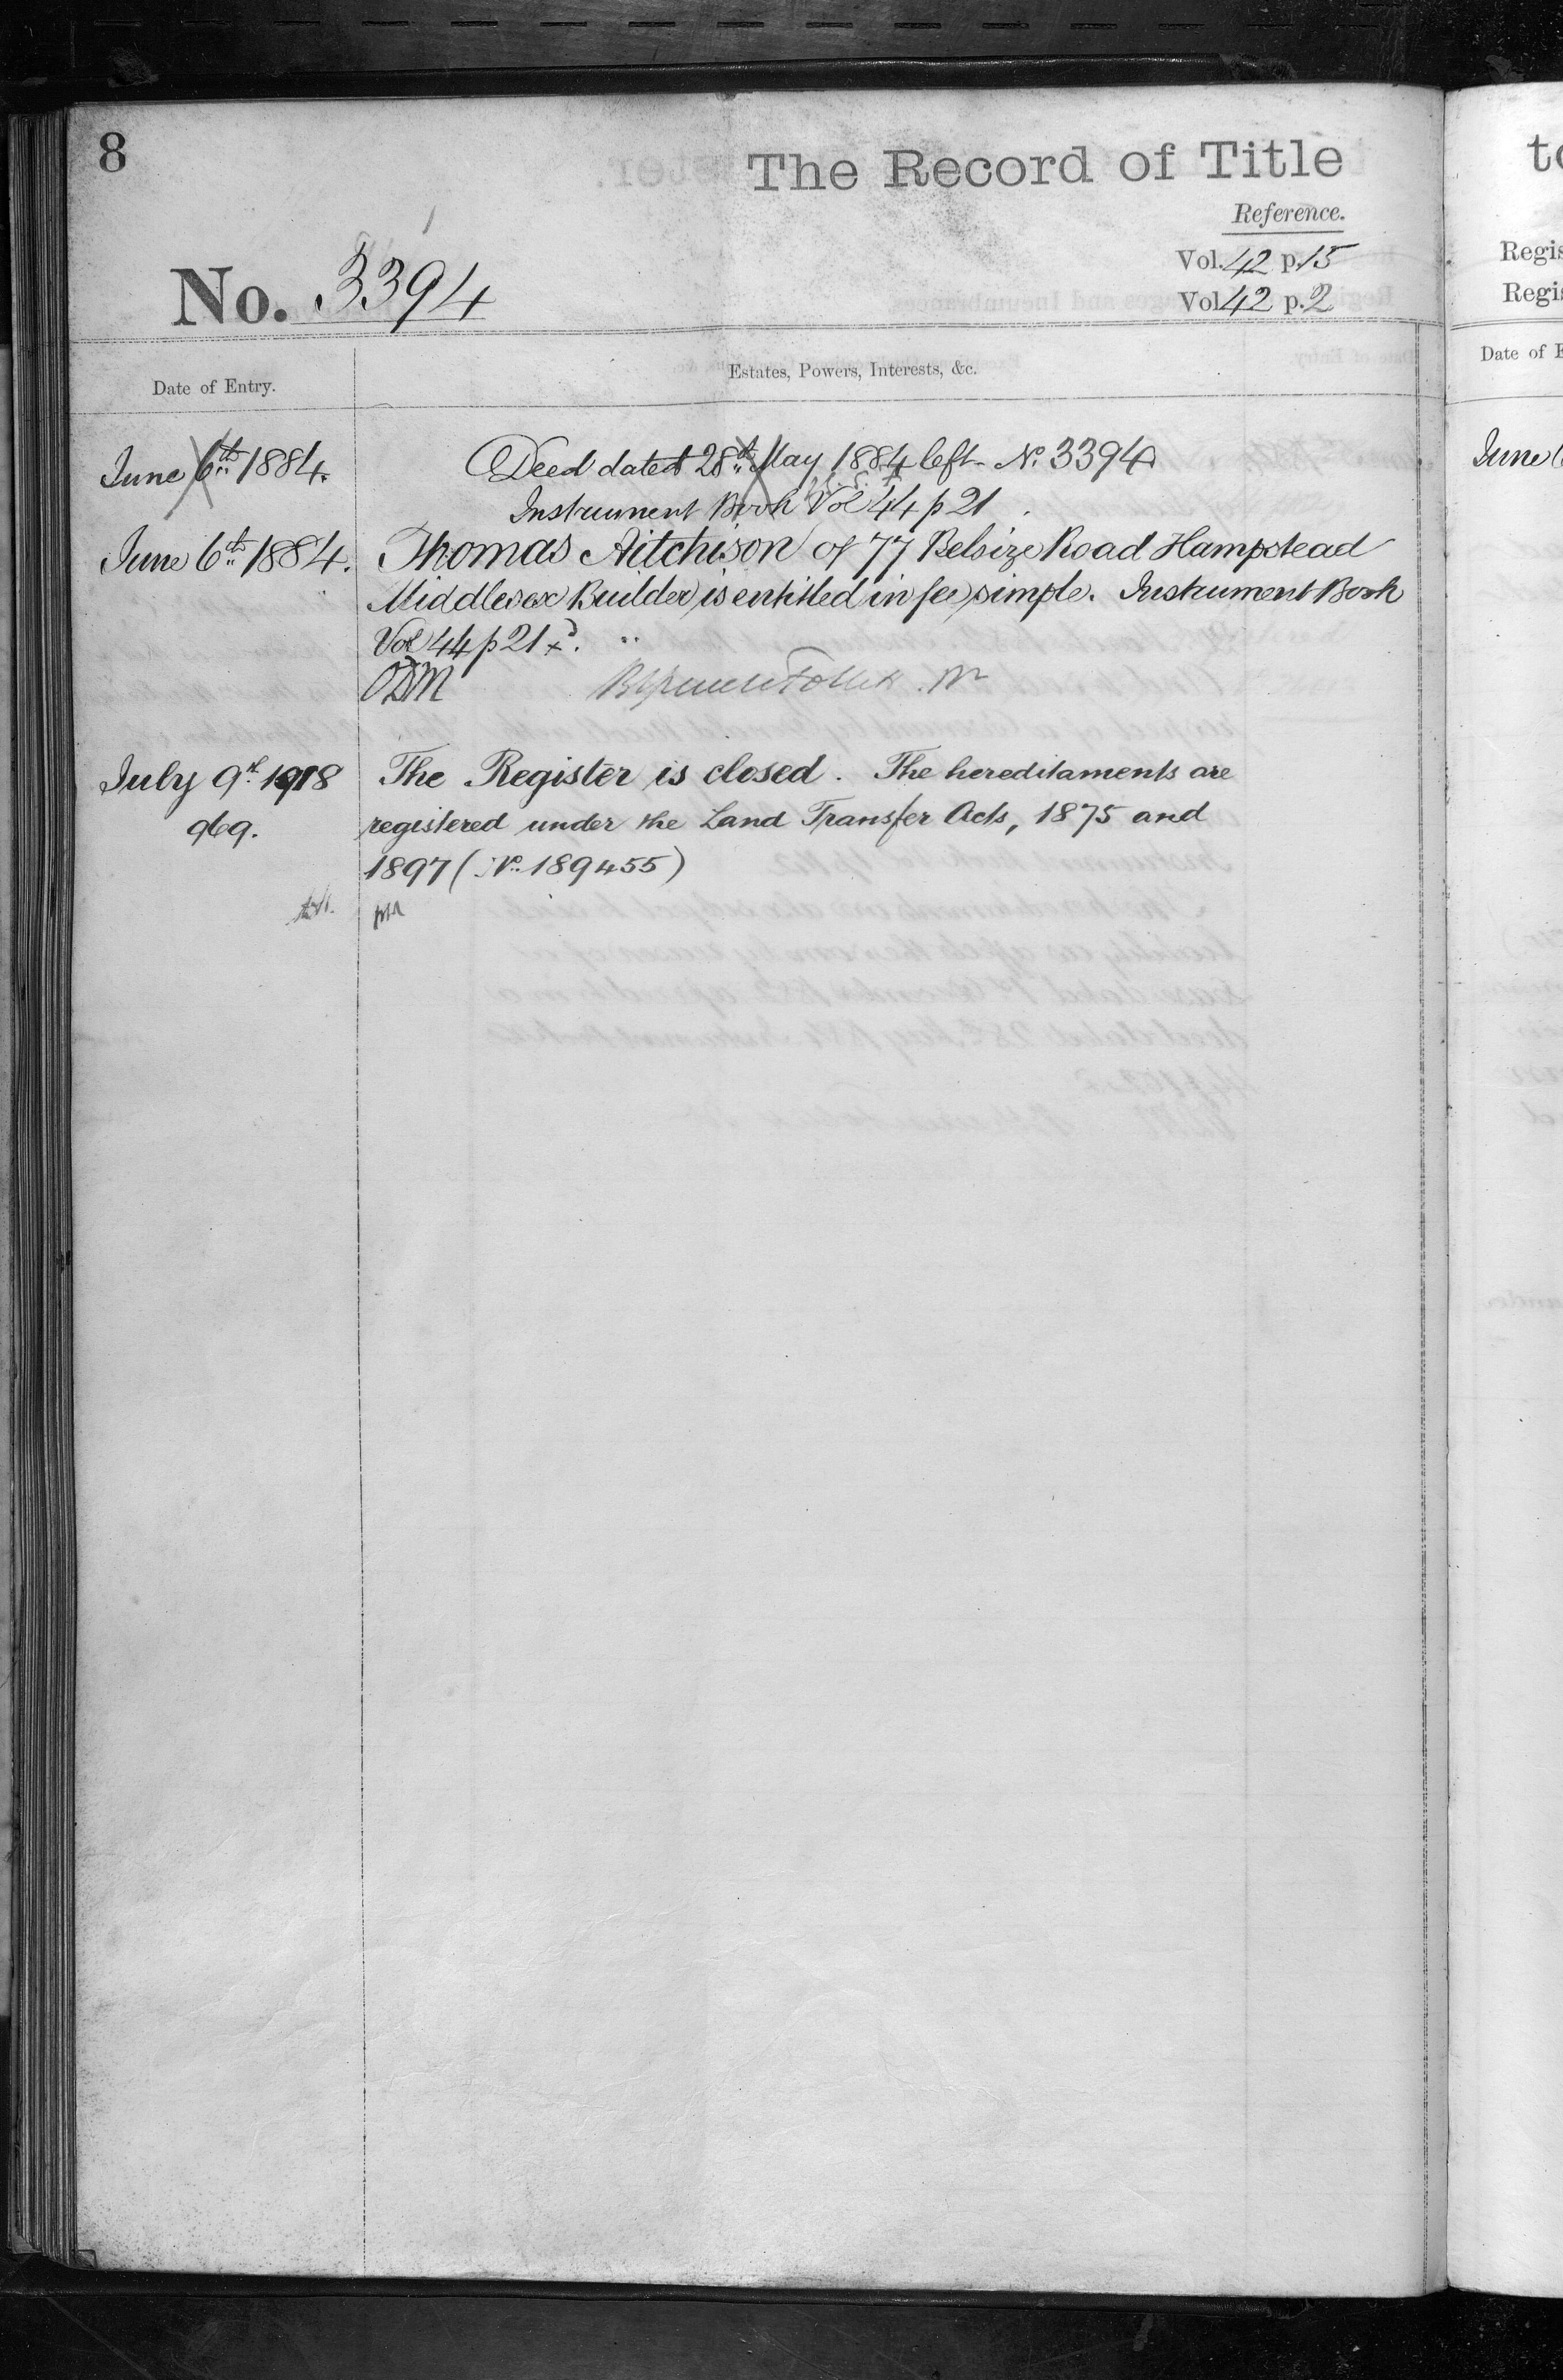 8
The Record of Title
Reference.
Vol. 42 p. 15
No. 3394
Vol 42 p. 2
Date of Entry.
Estates, Powers, Interests, &c.
June 6th 1884.
Deed dated 28th May 1884 left No. 3394
Instrument Book Vol 44 p 21
June 6th 1884.
Thomas Aitchison of 77 Belsize Road Hampstead
Middlesex Builder is entitled in fee simple. Instrument Book
Vol 44 p 21
July 9th 1918
The Register is closed. The hereditaments are
969.
registered under the Land Transfer Acts, 1875 and
1897 (No. 189455)
to
Regis
Regis
Date of E
June 6